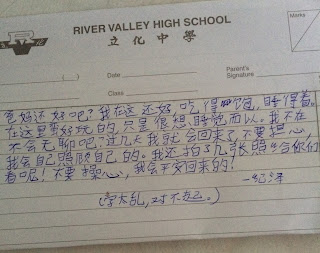 RIVER VALLEY HIGH SCHOOL
立化中學
Marks
( )
Date
Parent's
Signature
Class
爸妈还好吧?我在这还好,吃得饱,睡得着。
在这里蛮好玩的,只是很想睡觉而以。我不在
不会无聊吧?过几天我就会回来了,不要操心,
我会自己照顾自己的。我还拍了几张照给你们
看呢!不要操心,我会平安回来的!
(字太乱,对不起。)